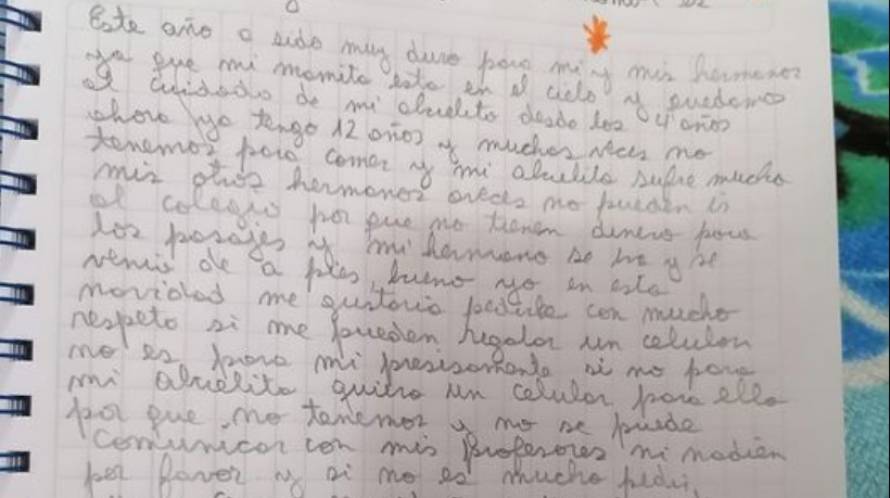 Este año a sido muy duro para mi y mis hermanos
ya que mi mamita esta en el cielo y quedamos
al cuidado de mi abuelito desde los 4 años
ahora yo tengo 12 años y muchas veces no
tenemos para comer y mi abuelita sufre mucho
mis otros hermanos aveces no pueden ir
al colegio por que no tienen dinero para
los pasajes y mi hermano se va y se
venia de a pies, bueno yo en esta
navidad me gustaria pedirte con mucho
respeto si me pueden regalar un celular
no es para mi presisamente si no para
mi abuelita quiero un celular para ella
por que no tenemos y no se puede
comunicar con mis profesores ni nadien
por favor y si no es mucho pedir,